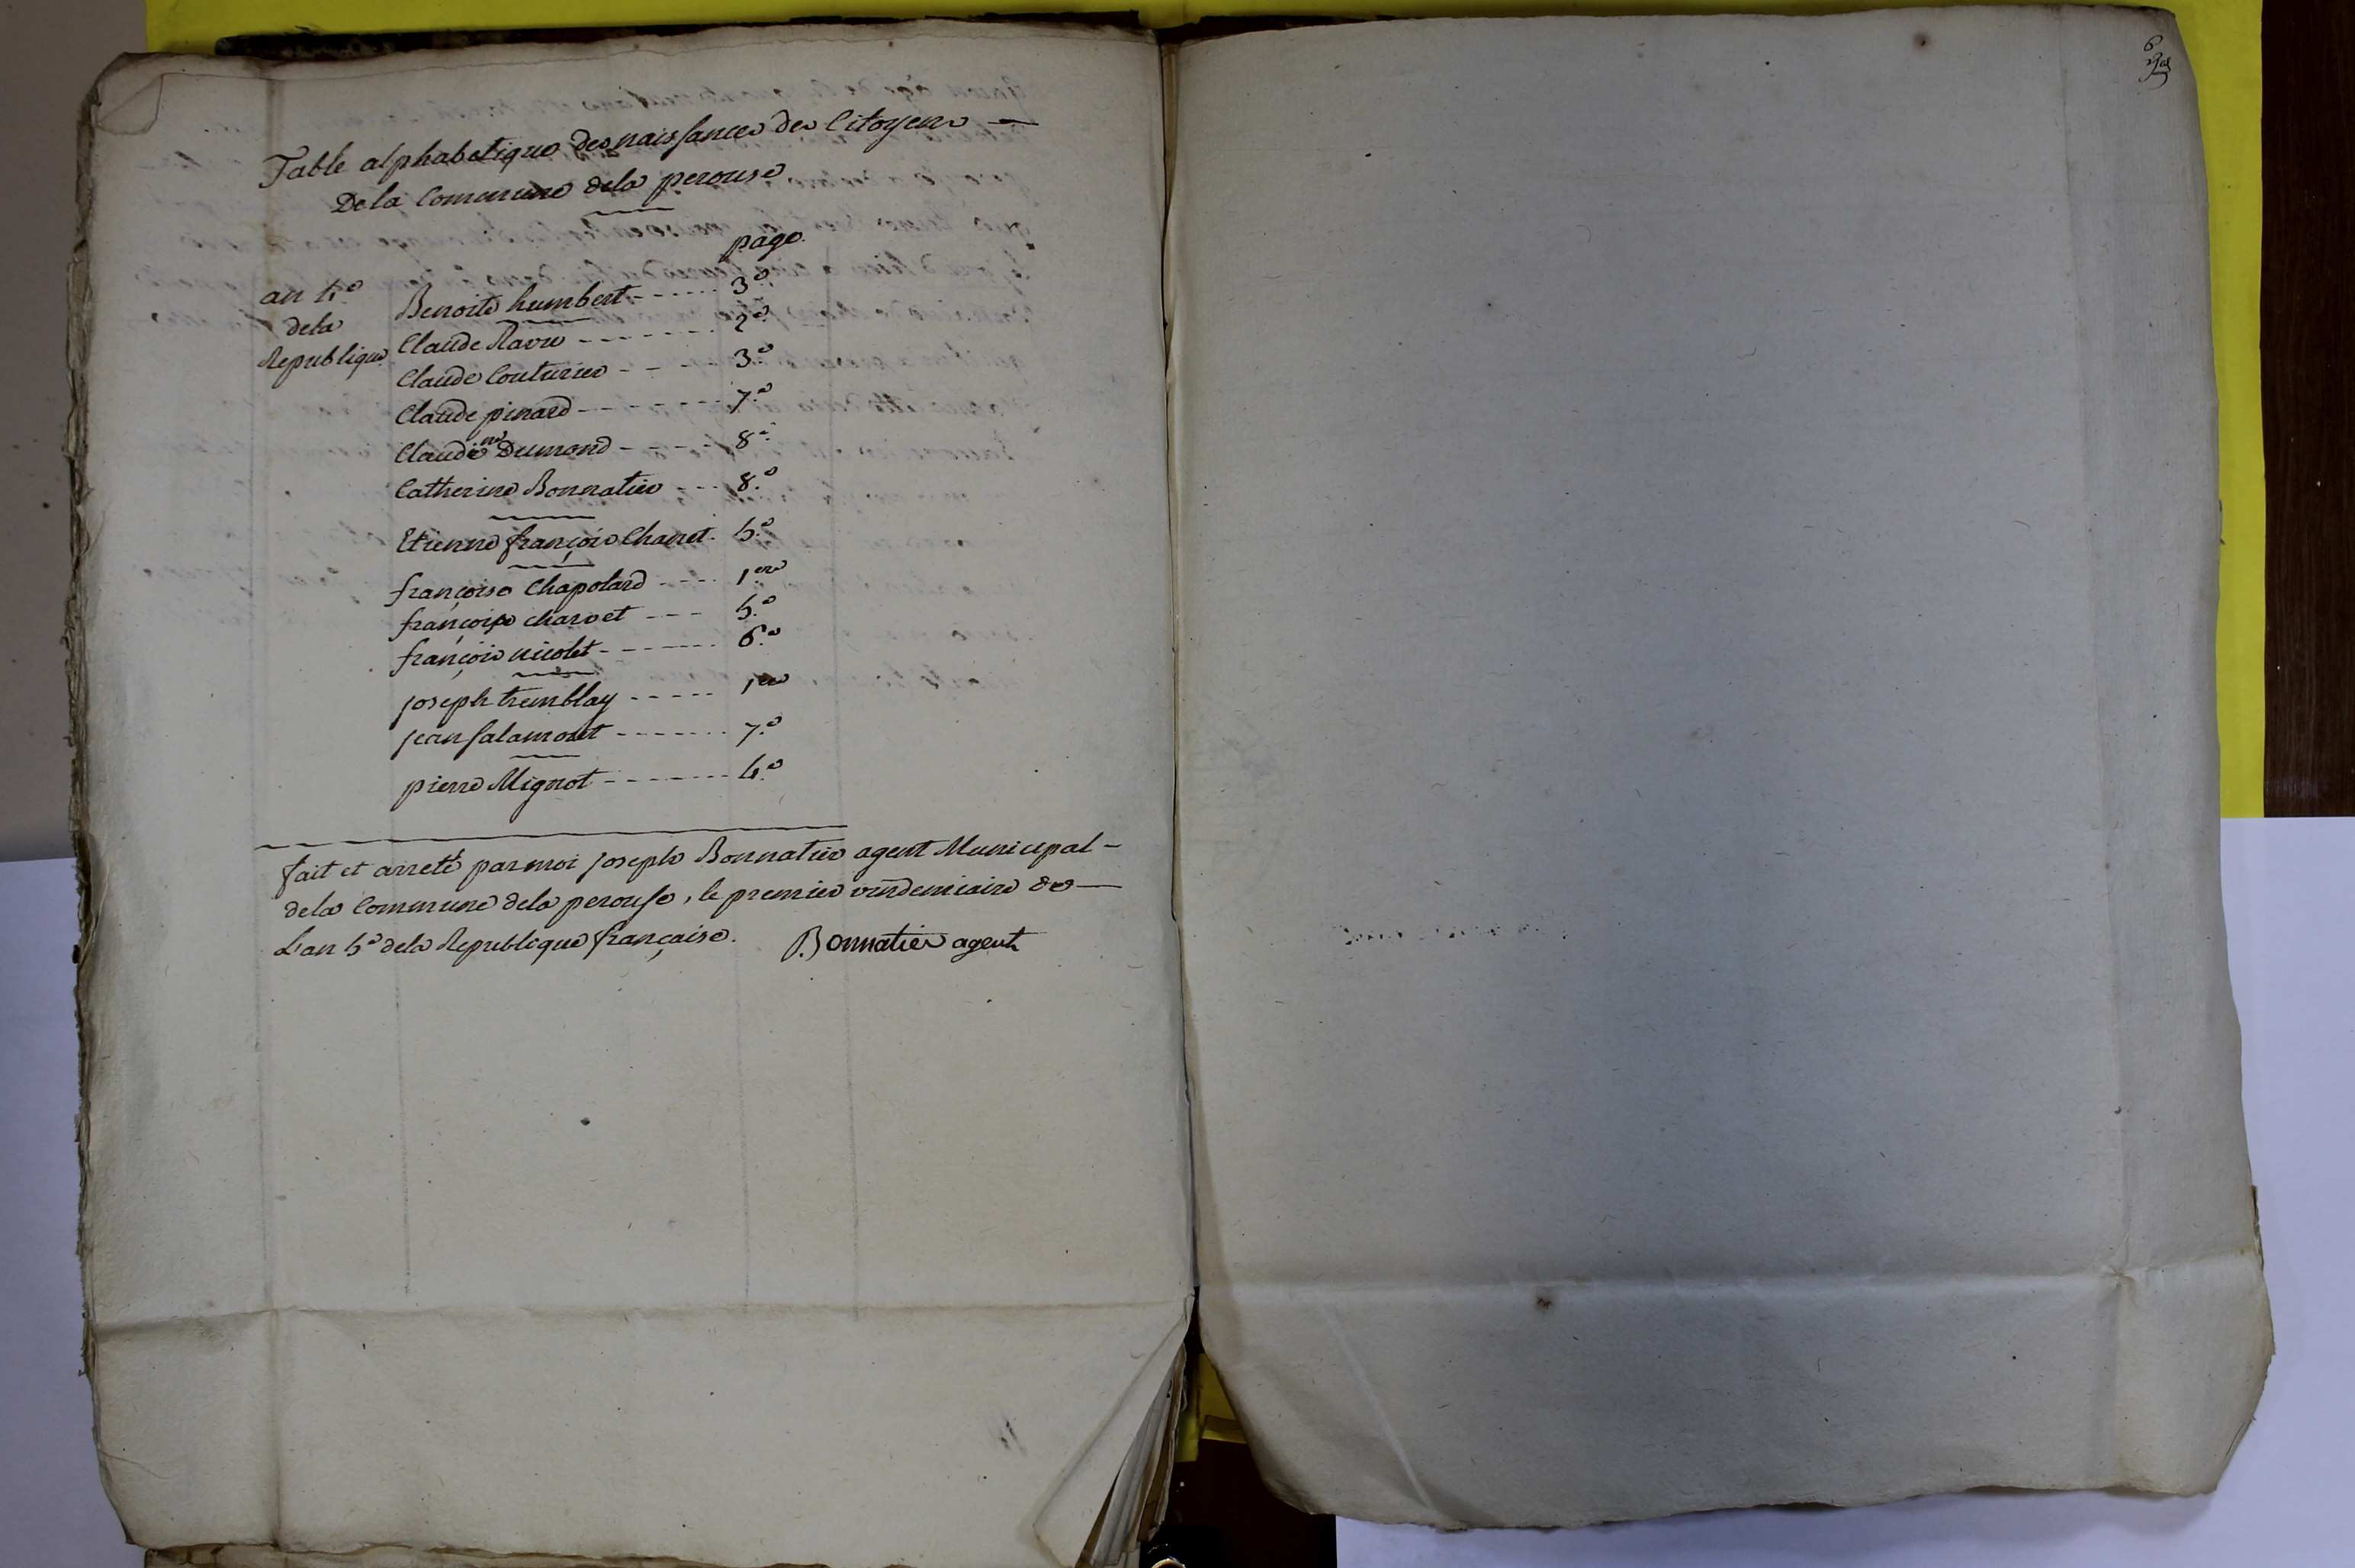 Table alphabetique des naissances des Citoyens —
De la Commune de la perouse
page.
an 4.e Benoite humbert ------ 3.e
de la Claude Ravu ------- 2.e
Republique Claude Couturier - - - - 3.e
Claude pinard -------- 7.e
Claudine Dumond - - - - 8.e
Catherine Bonnatier --- 8.e
Etienne françois Charvet. 5.e
françoise Chapolard ---- 1.ere
françoise charvet --- 5.e
françois nicolet ------- 6.e
joseph tremblay ----- 1ere
jean salamont ------- 7.e
pierre Mignot -------- 4.e
fait et arreté par moi joseph Bonnatier agent Municipal –
de la Commune de la perouse, le premier vendemiaire de —
L'an 5.e de la Republique française. Bonnatier agent
6